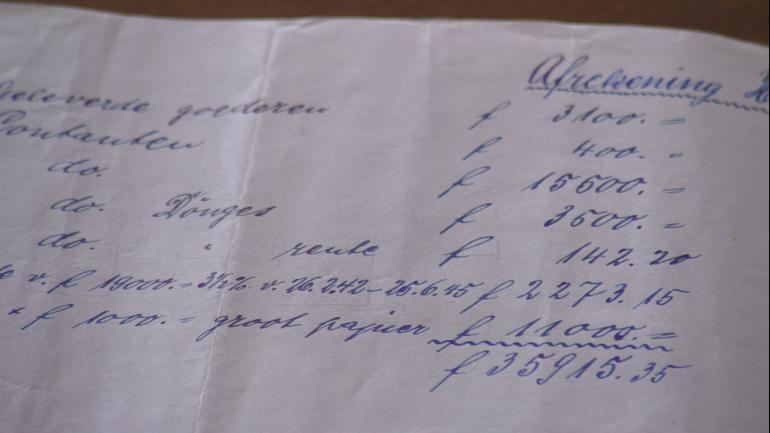 Afrekening
Geleverde goederen f 3100.=
Contanten f 400.=
do. f 15500.=
do. Dönges f 3500.=
do. " rente f 142.20
v. f 19000.= 3½% v. 26.2.42 - 25.6.45 f 2273.15
f 1000.= groot papier f 11000.=
f 35915.35